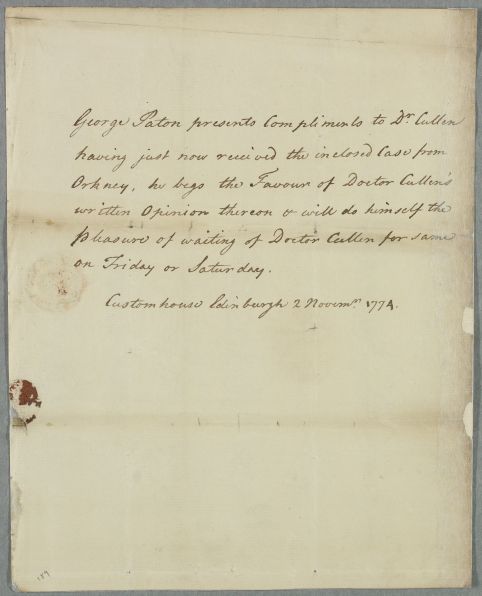 George Paton presents Compliments to Dr. Cullen
having just now received the inclosed Case from
Orkney, he begs the Favour of Doctor Cullen's
written Opinion thereon & will do himself the
pleasure of waiting of Doctor Cullen for same
on Friday or Saturday.
Customhouse Edinburgh 2 Novemr. 1774.